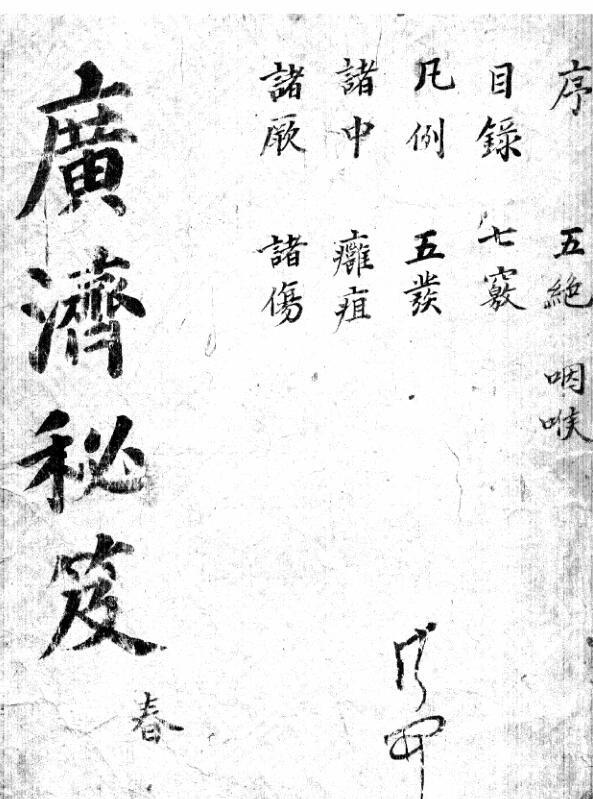 序 五絶 咽喉
目錄 七竅
凡例 五發
諸中 癰疽
諸厥 諸傷
廣濟秘笈
春